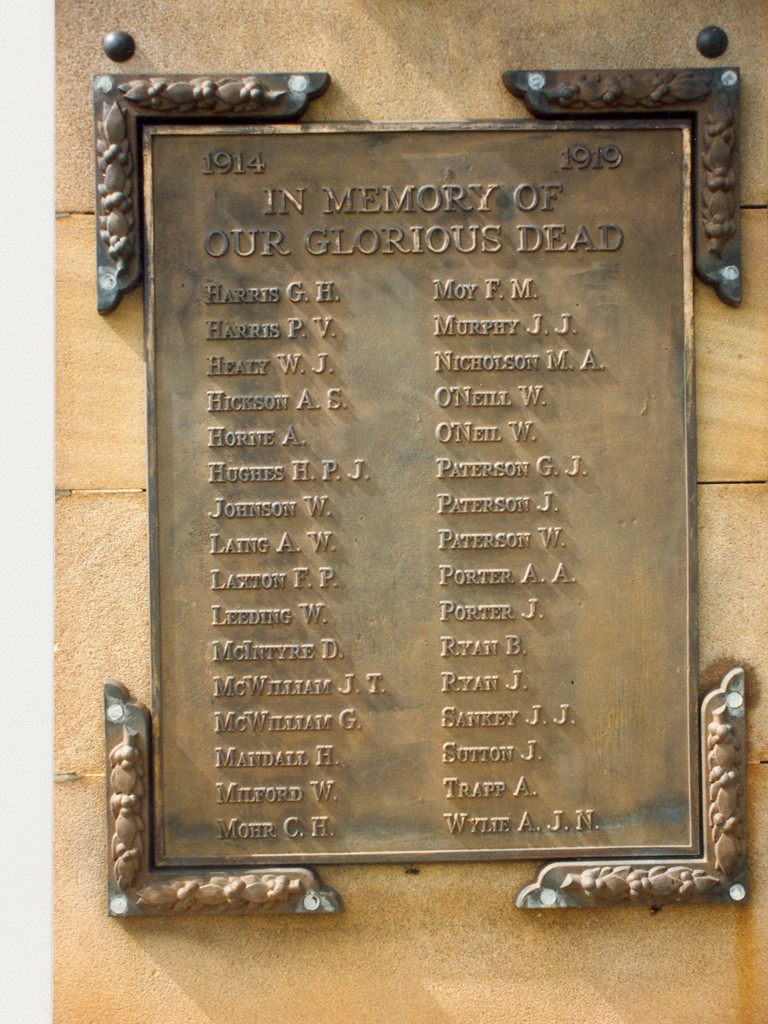 1914 1919
IN MEMORY OF
OUR GLORIOUS DEAD
HARRIS G. H.
HARRIS P. V.
HEALY W. J.
HICKSON A. S.
HORNE A.
HUGHES H. P. J.
JOHNSON W.
LAING A. W.
LAXTON F. P.
LEEDING W.
MCINTYRE D.
MCWILLIAM J. T.
MCWILLIAM G.
MANDALL H.
MILFORD W.
MOHR C. H.
MOY F. M.
MURPHY J. J.
NICHOLSON M. A.
O'NEILL W.
O'NEIL W.
PATERSON G. J.
PATERSON J.
PATERSON W.
PORTER A. A.
PORTER J.
RYAN B.
RYAN J.
SANKEY J. J.
SUTTON J.
TRAPP A.
WYLIE A. J. N.